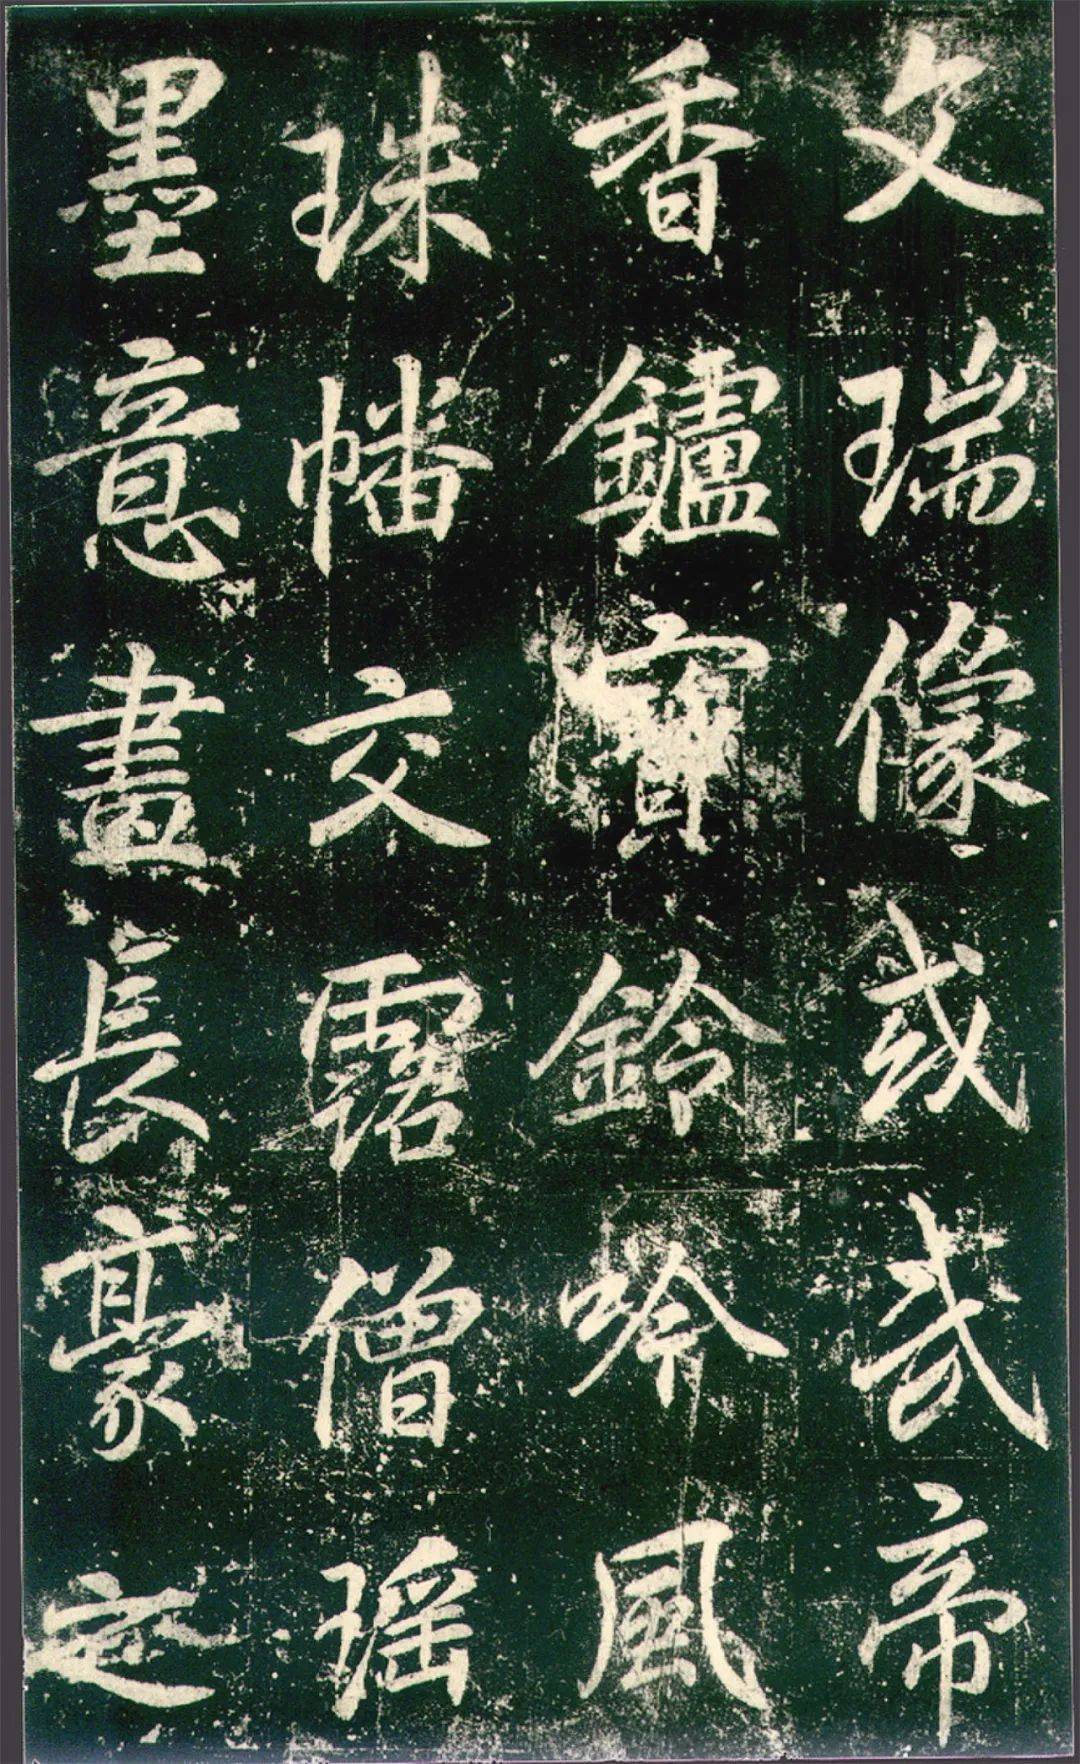 文瑞像或武帝
香鑪寶鈴吟風
珠幡交露僧瑤
墨意畫長豪之